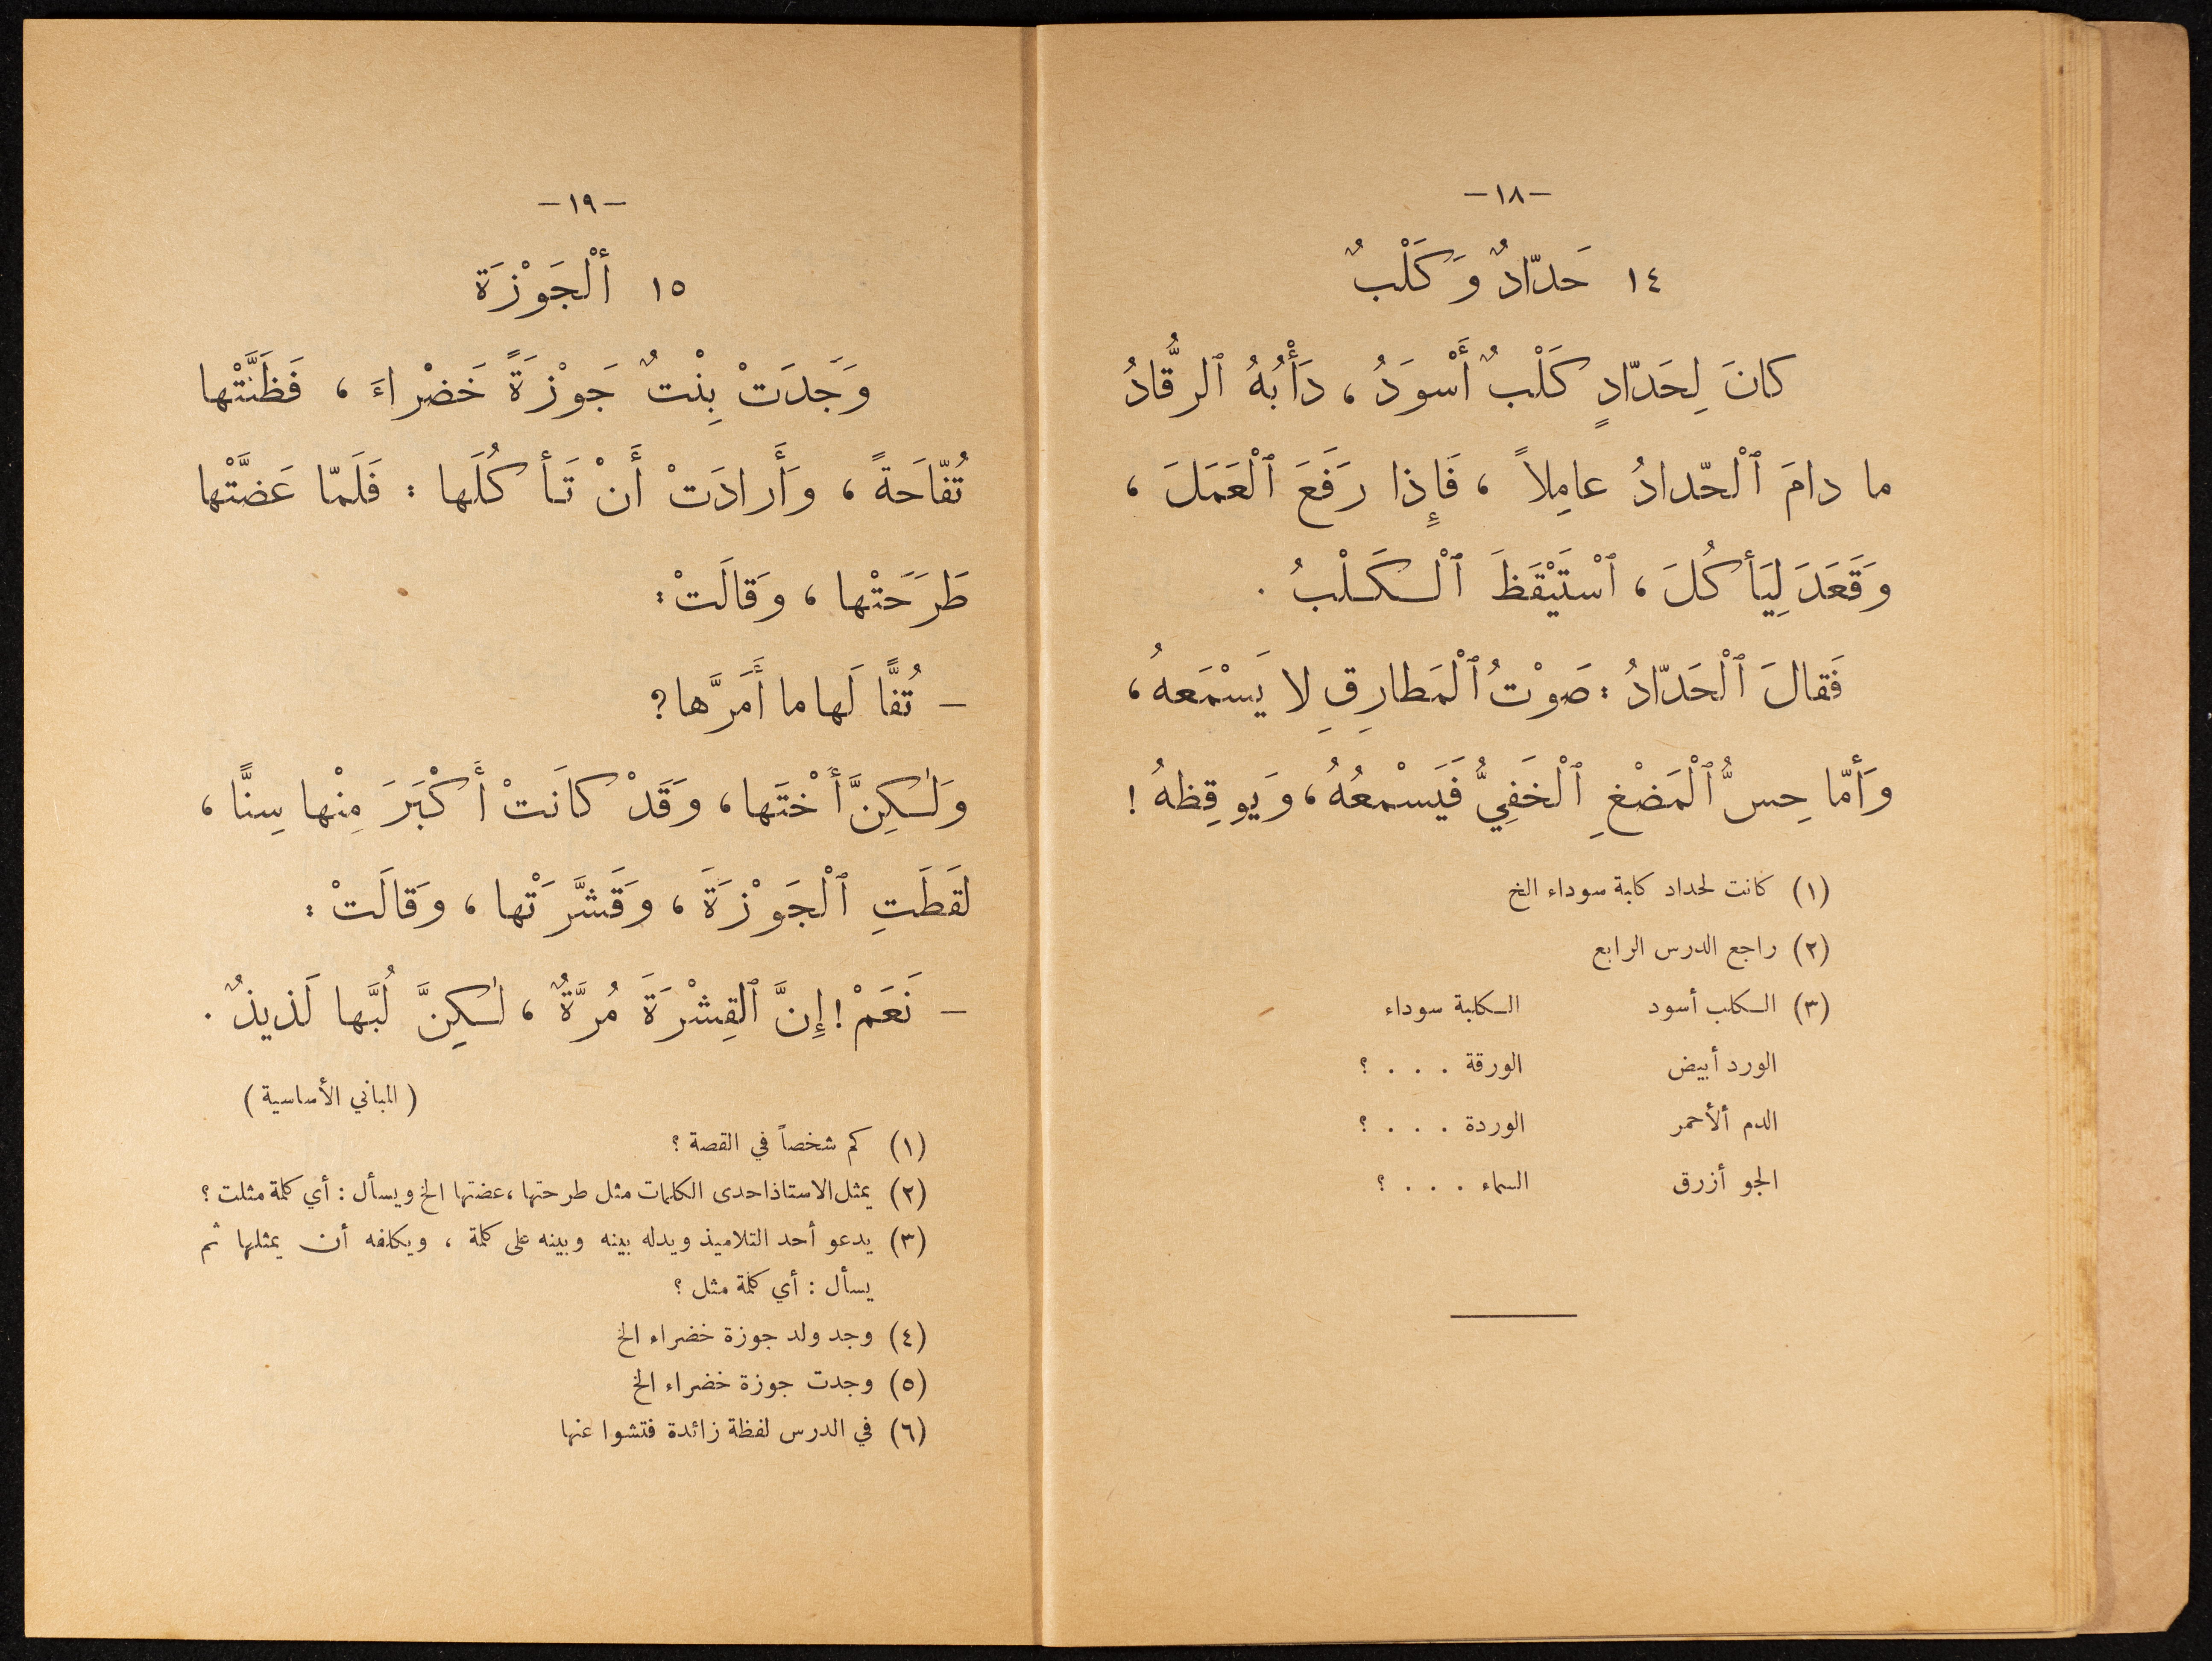 -١٨-
١٤ حَدّادٌ وَكَلْبٌ
كانَ لِحَدّادٍ كَلْبٌ أَسْوَدُ ، دَأْبُهُ ٱلرُّقَادُ
ما دامَ ٱلْحّدادُ عامِلاً ، فَإِذا رَفَعَ ٱلْعَمَلَ ،
وَقَعَدَ لِيَأكُلَ ، ٱسْتَيْقَظَ ٱلْكَلْبُ .
فَقالَ ٱلْحَدّادُ : صَوْتُ ٱلْمَطارِقِ لا يَسْمَعهُ ،
وَأمّا حِسُّ ٱلْمَضْغِ ٱلْخَفِيُّ فَيَسْمعُهُ ، وَيوقِظهُ !
(١) كانت لحداد كلبة سوداء الخ
(٢) راجع الدرس الرابع
(٣) الكلب أسود الكلبة سوداء
الورد أبيض الورقة . . . ؟
الدم ألأحمر الوردة . . . ؟
الجو أزرق السماء . . . ؟
-١٩-
١٥ ألْجَوْزَة
وَجَدَتْ بِنْتٌ جَوْزَةً خَضْراءَ ، فَظَنَّتْها
تُفّاحَةً ، وَأَرادَتْ أَنْ تَأكُلَها : فَلَمّا عَضَّتْها
طَرَحَتْها ، وَقالَتْ :
- تُفًّا لَها ما أَمَرَّها ?
وَلٰكِنَّ أخْتَها ، وَقَدْ كانَتْ أَكْبَرَ مِنْها سِنًّا ،
لقَطَتِ ٱلْجَوْزَةَ ، وَقَشَّرَتْها ، وَقالَتْ :
- نَعَمْ ! إِنَّ ٱلقِشْرَةَ مُرَّةٌ ، لٰكِنَّ لُبَّها لَذيذٌ .
( المباني الأساسية )
(١) كم شخصاً في القصة ؟
(٢) يمثل الاستاذ احدى الكلمات مثل طرحتها ، عضتها الخ ويسأل : أي كلمة مثلت ؟
(٣) يدعو أحد التلاميذ ويدله بينه وبينه على كلمة ، ويكلفه أن يمثلها ثم
يسأل : أي كلمة مثل ؟
(٤) وجد ولد جوزة خضراء الخ
(٥) وجدت جوزة خضراء الخ
(٦) في الدرس لفظة زائدة فتشوا عنها